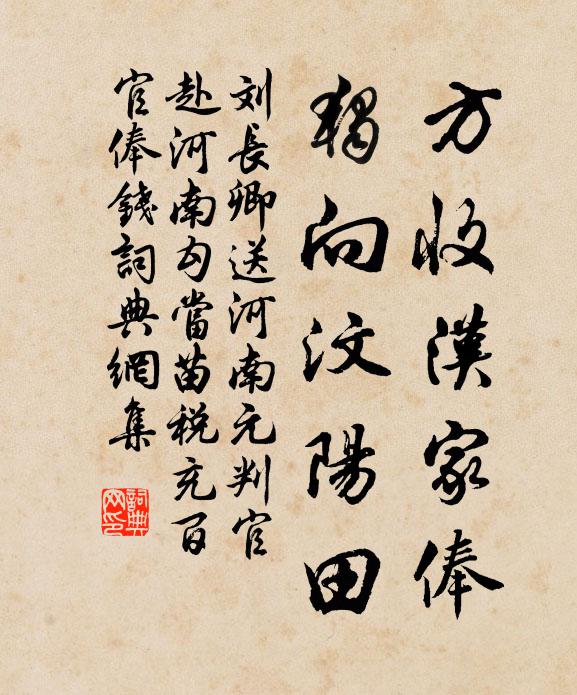 方收漢家俸
獨向汶陽田
刘長卿送河南元判官
赴河南勾當苗税充百
官俸錢詞典網集
詞典网印